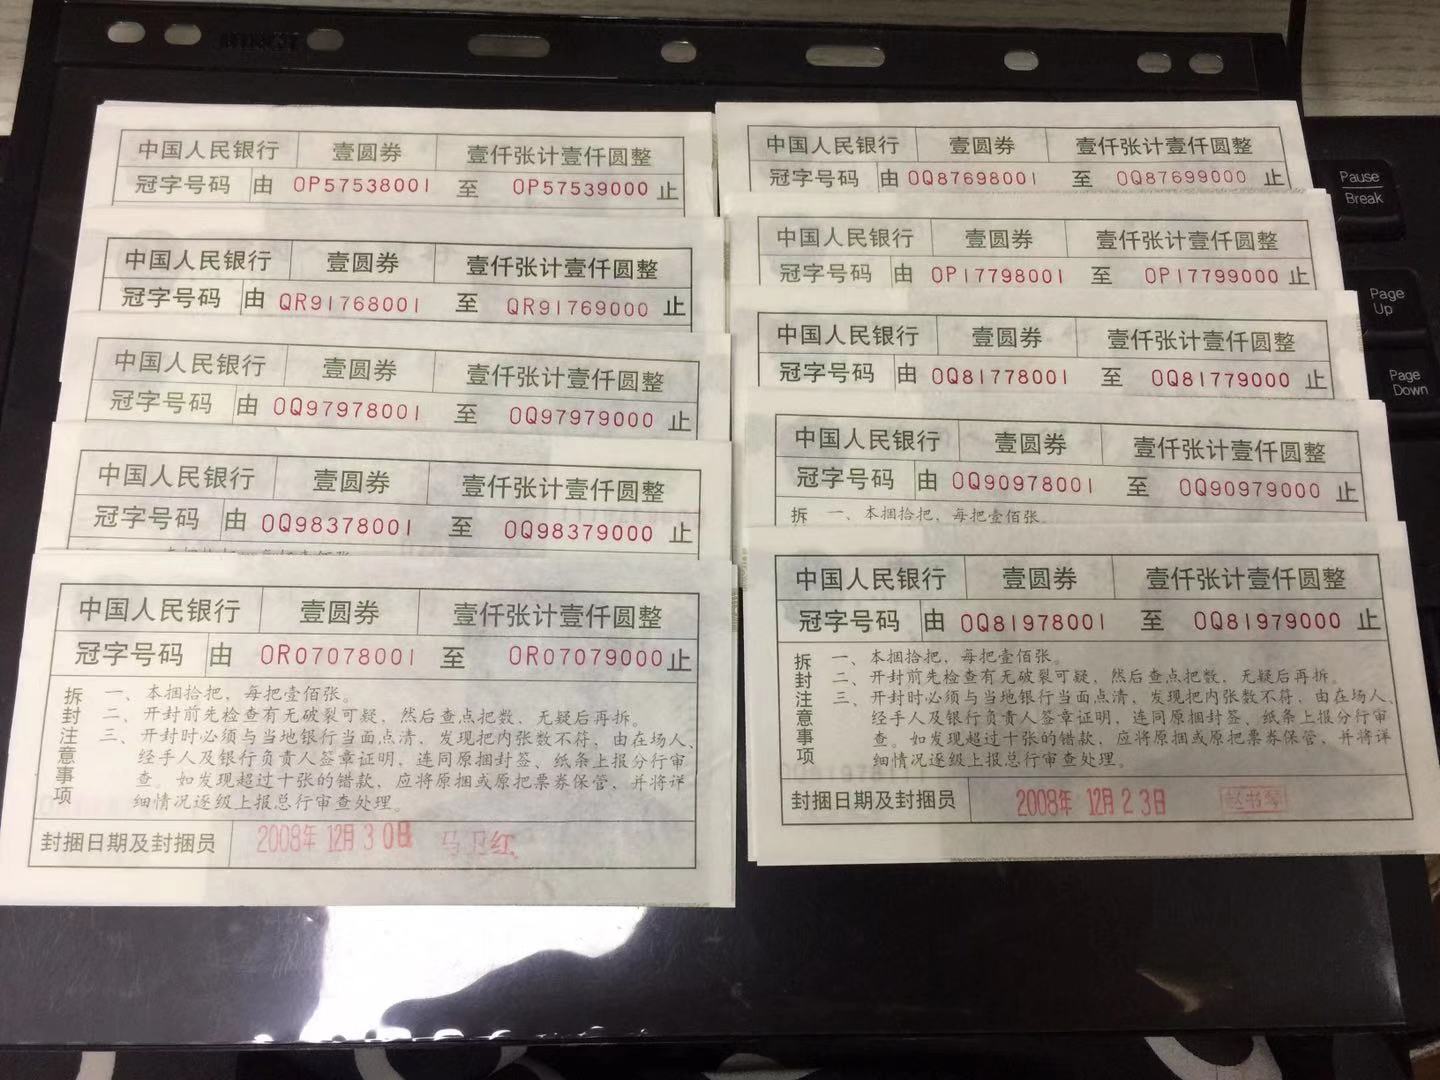 中国人民银行 壹圆券 壹仟张计壹仟圆整
冠字号码 由 OP57538001 至 OP57539000 止
中国人民银行 壹圆券 壹仟张计壹仟圆整
冠字号码 由 QR91768001 至 QR91769000 止
中国人民银行 壹圆券 壹仟张计壹仟圆整
冠字号码 由 OQ97978001 至 OQ97979000 止
中国人民银行 壹圆券 壹仟张计壹仟圆整
冠字号码 由 OQ98378001 至 OQ98379000 止
中国人民银行 壹圆券 壹仟张计壹仟圆整
冠字号码 由 OR07078001 至 OR07079000 止
拆封注意事项
一、本捆拾把，每把壹佰张。
二、开封前先检查有无破裂可疑，然后查点把数，无疑后再拆。
三、开封时必须与当地银行当面点清，发现把内张数不符，由在场人、
经手人及银行负责人签章证明，连同原捆封签、纸条上报分行审
查。如发现超过十张的错款，应将原捆或原把票券保管，并将详
细情况逐级上报总行审查处理。
封捆日期及封捆员 2008年 12月30日 马卫红
中国人民银行 壹圆券 壹仟张计壹仟圆整
冠字号码 由 OQ87698001 至 OQ87699000 止
中国人民银行 壹圆券 壹仟张计壹仟圆整
冠字号码 由 OP17798001 至 OP17799000 止
中国人民银行 壹圆券 壹仟张计壹仟圆整
冠字号码 由 OQ81778001 至 OQ81779000 止
中国人民银行 壹圆券 壹仟张计壹仟圆整
冠字号码 由 OQ90978001 至 OQ90979000 止
拆 一、本捆拾把，每把壹佰张。
中国人民银行 壹圆券 壹仟张计壹仟圆整
冠字号码 由 OQ81978001 至 OQ81979000 止
拆封注意事项
一、本捆拾把，每把壹佰张。
二、开封前先检查有无破裂可疑，然后查点把数，无疑后再拆。
三、开封时必须与当地银行当面点清，发现把内张数不符，由在场人、
经手人及银行负责人签章证明，连同原捆封签、纸条上报分行审
查。如发现超过十张的错款，应将原捆或原把票券保管，并将详
细情况逐级上报总行审查处理。
封捆日期及封捆员 2008年 12月23日 赵书琴
Pause
Break
Page
Up
Page
Down